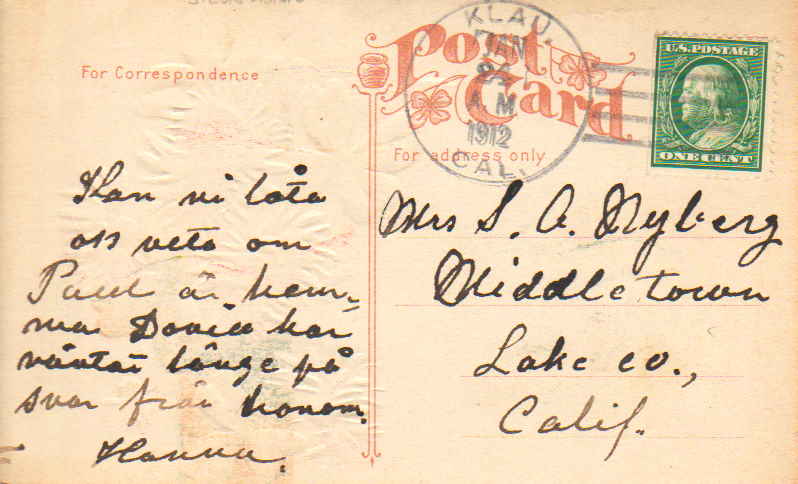 For Correspondence
Kan vi låta
oss veta om
Paul är hem-
ma. David har
väntat länge på
svar från honom.
Hanna.
Post Card
For address only
KLAU.
JAN
A.M.
1912
CAL.
U.S. POSTAGE
ONE CENT
Mrs S. A. Nyberg
Middletown
Lake co.,
Calif.